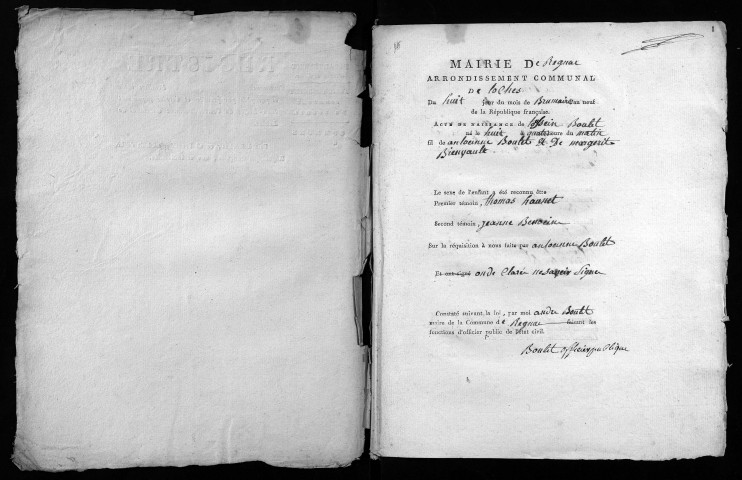 1
MAIRIE De Reignac
ARRONDISSEMENT COMMUNAL
De loches
Du huit jour du mois de Brumaire an neuf
de la République française.
ACTE DE NAISSANCE de Boulet
né le huit à quatre heure du matin
fil de antoienne Boulet & De margerit
Bienvault
Le sexe de l'enfant a été reconnu être
Premier témoin, thomas
Second témoin, jeanne
Sur la réquisition à nous faite par antoienne Boulet
Et ont signé on de Clarée ne savoir Signe
Constaté suivant la loi, par moi andre Boulet
maire de la Commune de Reignac faisant les
fonctions d'officier public de l'état civil.
Boulet officier publique